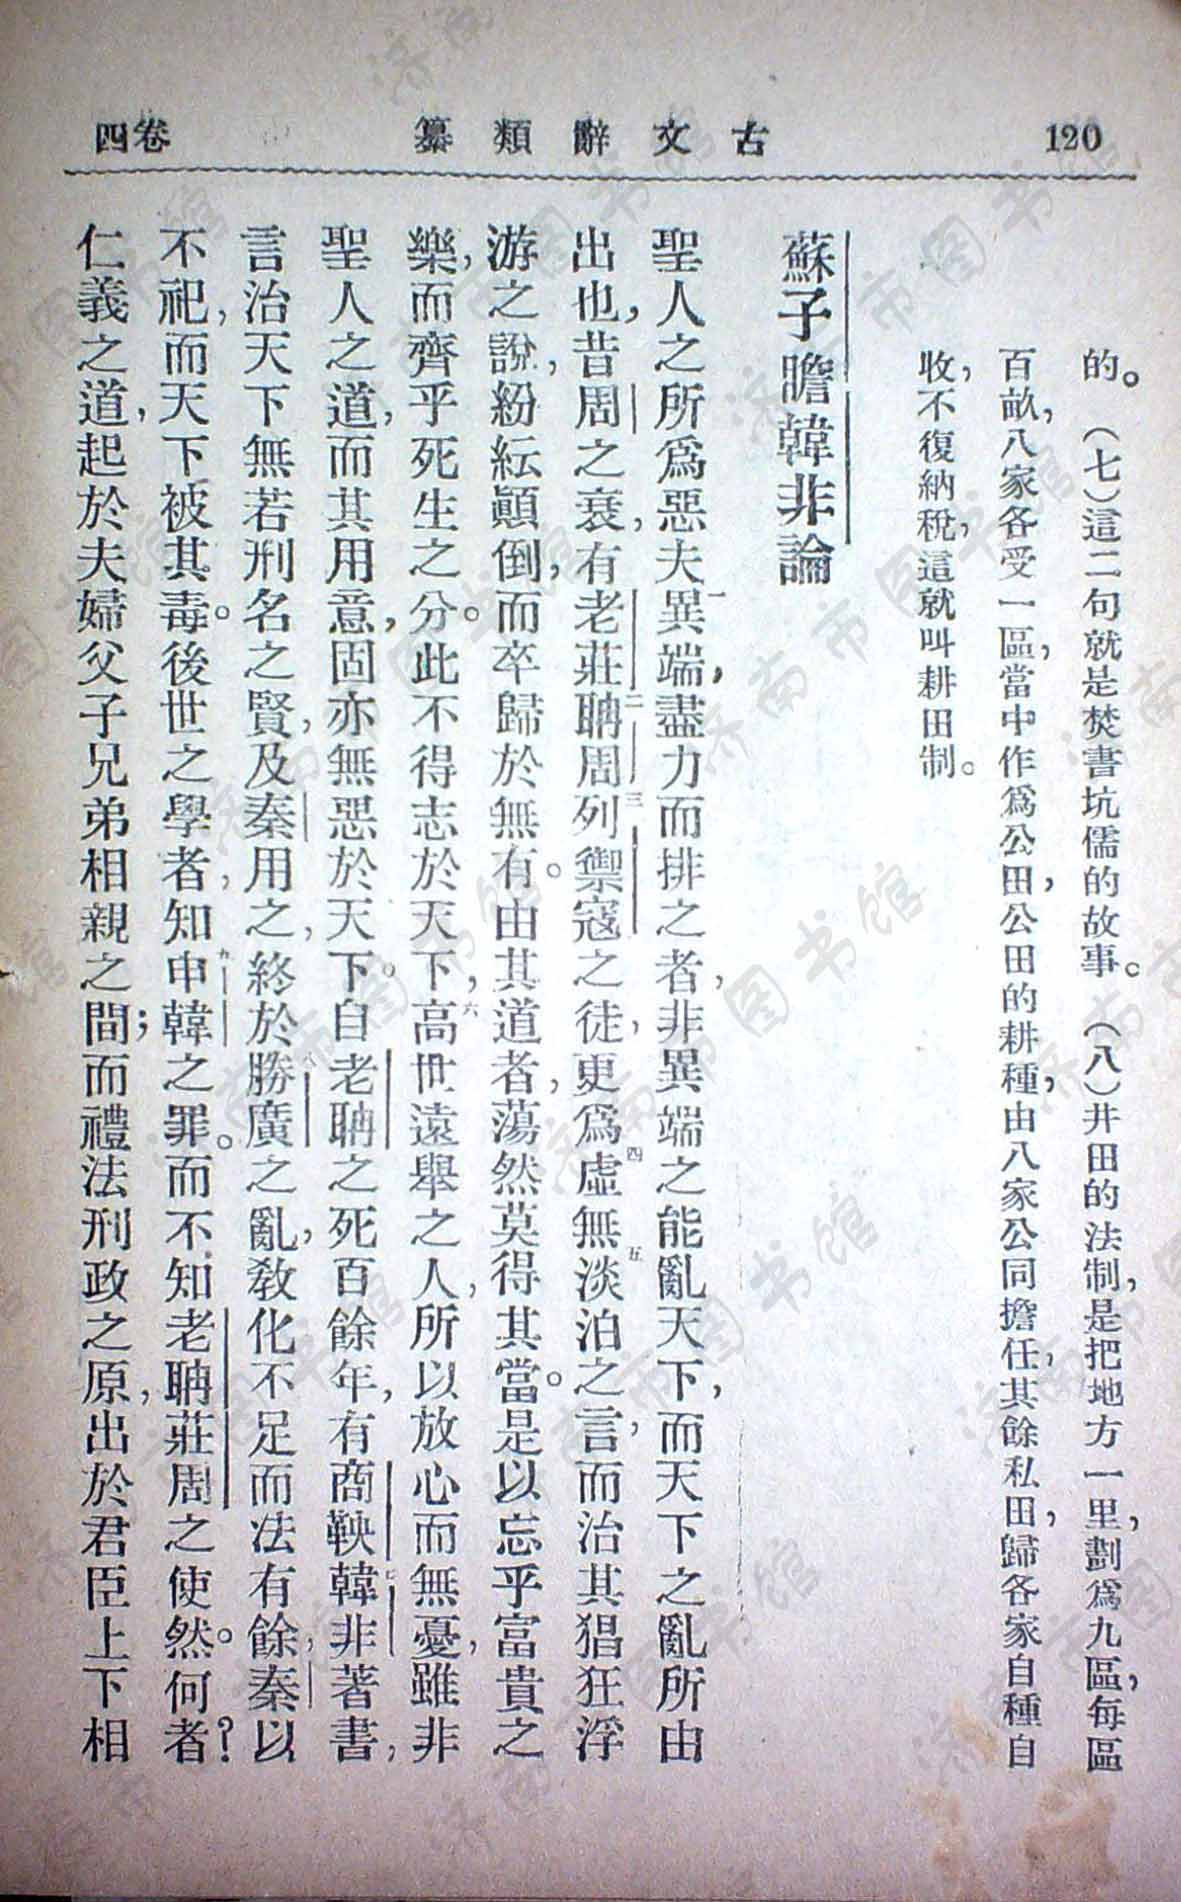 120
古文辭類纂
卷四
的。（七）這二句就是焚書坑儒的故事。（八）井田的法制，是把地方一里，劃爲九區，每區
百畝，八家各受一區，當中作爲公田，公田的耕種，由八家公同擔任，其餘私田，歸各家自種自
收，不復納稅，這就叫耕田制。
蘇子瞻韓非論
聖人之所爲惡夫異端，盡力而排之者，非異端之能亂天下，而天下之亂所由
出也，昔周之衰，有老莊聃周列禦寇之徒，更爲虛無淡泊之言，而治其猖狂浮
游之說，紛紜顚倒，而卒歸於無有。由其道者，蕩然莫得其當。是以忘乎富貴之
樂，而齊乎死生之分。此不得志於天下，高世遠舉之人，所以放心而無憂，雖非
聖人之道，而其用意，固亦無惡於天下。自老聃之死百餘年，有商鞅韓非著書，
言治天下無若刑名之賢，及秦用之，終於勝廣之亂，敎化不足而法有餘，秦以
不祀，而天下被其毒。後世之學者，知申韓之罪。而不知老聃莊周之使然。何者？
仁義之道，起於夫婦父子兄弟相親之間；而禮法刑政之原，出於君臣上下相
一
二
三
四
五
六
七
八
九